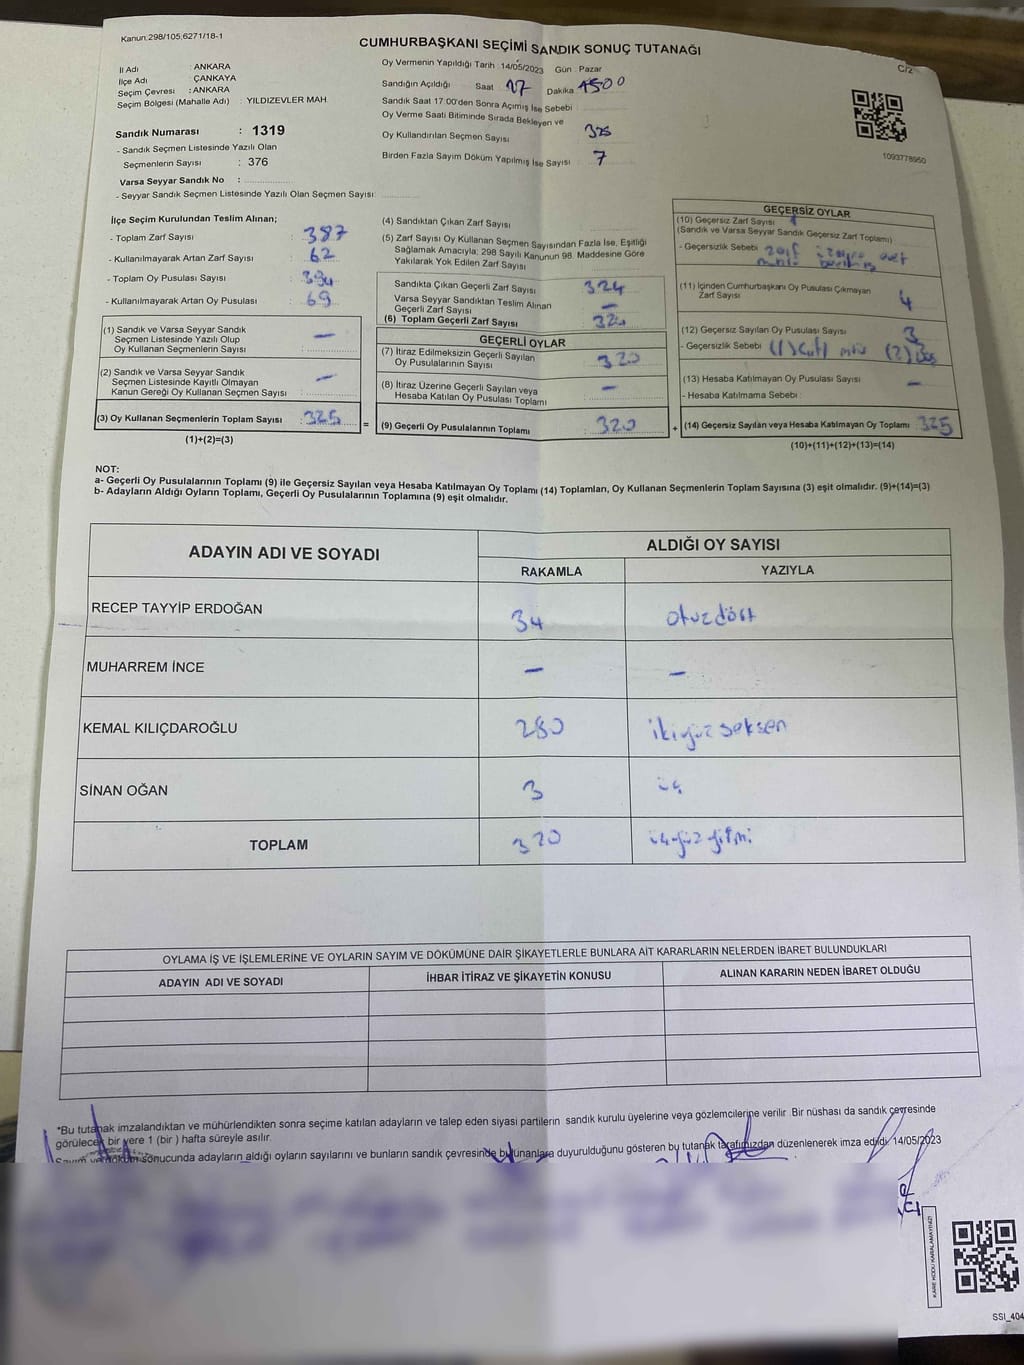 Kanun.298/105;6271/18-1
CUMHURBAŞKANI SEÇİMİ SANDIK SONUÇ TUTANAĞI
C/2
İl Adı : ANKARA
İlçe Adı : ÇANKAYA
Seçim Çevresi : ANKARA
Seçim Bölgesi (Mahalle Adı) : YILDIZEVLER MAH
Sandık Numarası : 1319
- Sandık Seçmen Listesinde Yazılı Olan
Seçmenlerin Sayısı : 376
Varsa Seyyar Sandık No :
- Seyyar Sandık Seçmen Listesinde Yazılı Olan Seçmen Sayısı:
Oy Vermenin Yapıldığı Tarih : 14/05/2023 Gün : Pazar
Sandığın Açıldığı Saat 17 Dakika
Sandık Saat 17:00'den Sonra Açımış İse Sebebi :
Oy Verme Saati Bitiminde Sırada Bekleyen ve
Oy Kullandırılan Seçmen Sayısı : 325
Birden Fazla Sayım Döküm Yapılmış İse Sayısı : 7
1093778950
İlçe Seçim Kurulundan Teslim Alınan;
- Toplam Zarf Sayısı : 387
- Kullanılmayarak Artan Zarf Sayısı : 62
- Toplam Oy Pusulası Sayısı : 394
- Kullanılmayarak Artan Oy Pusulası : 69
(1) Sandık ve Varsa Seyyar Sandık
Seçmen Listesinde Yazılı Olup
Oy Kullanan Seçmenlerin Sayısı : —
(2) Sandık ve Varsa Seyyar Sandık
Seçmen Listesinde Kayıtlı Olmayan
Kanun Gereği Oy Kullanan Seçmen Sayısı : —
(3) Oy Kullanan Seçmenlerin Toplam Sayısı : 325
(1)+(2)=(3)
=
(4) Sandıktan Çıkan Zarf Sayısı
(5) Zarf Sayısı Oy Kullanan Seçmen Sayısından Fazla İse, Eşitliği
Sağlamak Amacıyla; 298 Sayılı Kanunun 98. Maddesine Göre
Yakılarak Yok Edilen Zarf Sayısı
Sandıkta Çıkan Geçerli Zarf Sayısı : 324
Varsa Seyyar Sandıktan Teslim Alınan
Geçerli Zarf Sayısı : —
(6) Toplam Geçerli Zarf Sayısı : 324
GEÇERLİ OYLAR
(7) İtiraz Edilmeksizin Geçerli Sayılan
Oy Pusulalarının Sayısı : 320
(8) İtiraz Üzerine Geçerli Sayılan veya
Hesaba Katılan Oy Pusulası Toplamı : —
(9) Geçerli Oy Pusulalarının Toplamı : 320
+
GEÇERSİZ OYLAR
(10) Geçersiz Zarf Sayısı : 1
(Sandık ve Varsa Seyyar Sandık Geçersiz Zarf Toplamı)
- Geçersizlik Sebebi
(11) İçinden Cumhurbaşkanı Oy Pusulası Çıkmayan
Zarf Sayısı : 4
(12) Geçersiz Sayılan Oy Pusulası Sayısı : 3
- Geçersizlik Sebebi
(13) Hesaba Katılmayan Oy Pusulası Sayısı : —
- Hesaba Katılmama Sebebi :
(14) Geçersiz Sayılan veya Hesaba Katılmayan Oy Toplamı : 325
(10)+(11)+(12)+(13)=(14)
NOT:
a- Geçerli Oy Pusulalarının Toplamı (9) ile Geçersiz Sayılan veya Hesaba Katılmayan Oy Toplamı (14) Toplamları, Oy Kullanan Seçmenlerin Toplam Sayısına (3) eşit olmalıdır. (9)+(14)=(3)
b- Adayların Aldığı Oyların Toplamı, Geçerli Oy Pusulalarının Toplamına (9) eşit olmalıdır.
ADAYIN ADI VE SOYADI
ALDIĞI OY SAYISI
RAKAMLA YAZIYLA
RECEP TAYYİP ERDOĞAN 34 otuzdört
MUHARREM İNCE — —
KEMAL KILIÇDAROĞLU 280 ikiyüz seksen
SİNAN OĞAN 3 üç
TOPLAM 320 üçyüz yirmi
OYLAMA İŞ VE İŞLEMLERİNE VE OYLARIN SAYIM VE DÖKÜMÜNE DAİR ŞİKAYETLERLE BUNLARA AİT KARARLARIN NELERDEN İBARET BULUNDUKLARI
ADAYIN ADI VE SOYADI İHBAR İTİRAZ VE ŞİKAYETİN KONUSU ALINAN KARARIN NEDEN İBARET OLDUĞU
*Bu tutanak imzalandıktan ve mühürlendikten sonra seçime katılan adayların ve talep eden siyasi partilerin sandık kurulu üyelerine veya gözlemcilerine verilir. Bir nüshası da sandık çevresinde
görülecek bir yere 1 (bir ) hafta süreyle asılır.
Sayım ve döküm sonucunda adayların aldığı oyların sayılarını ve bunların sandık çevresinde bulunanlara duyurulduğunu gösteren bu tutanak tarafımızdan düzenlenerek imza edildi. 14/05/2023
KARE KODU KARALAMAYINIZ!
SSI_404